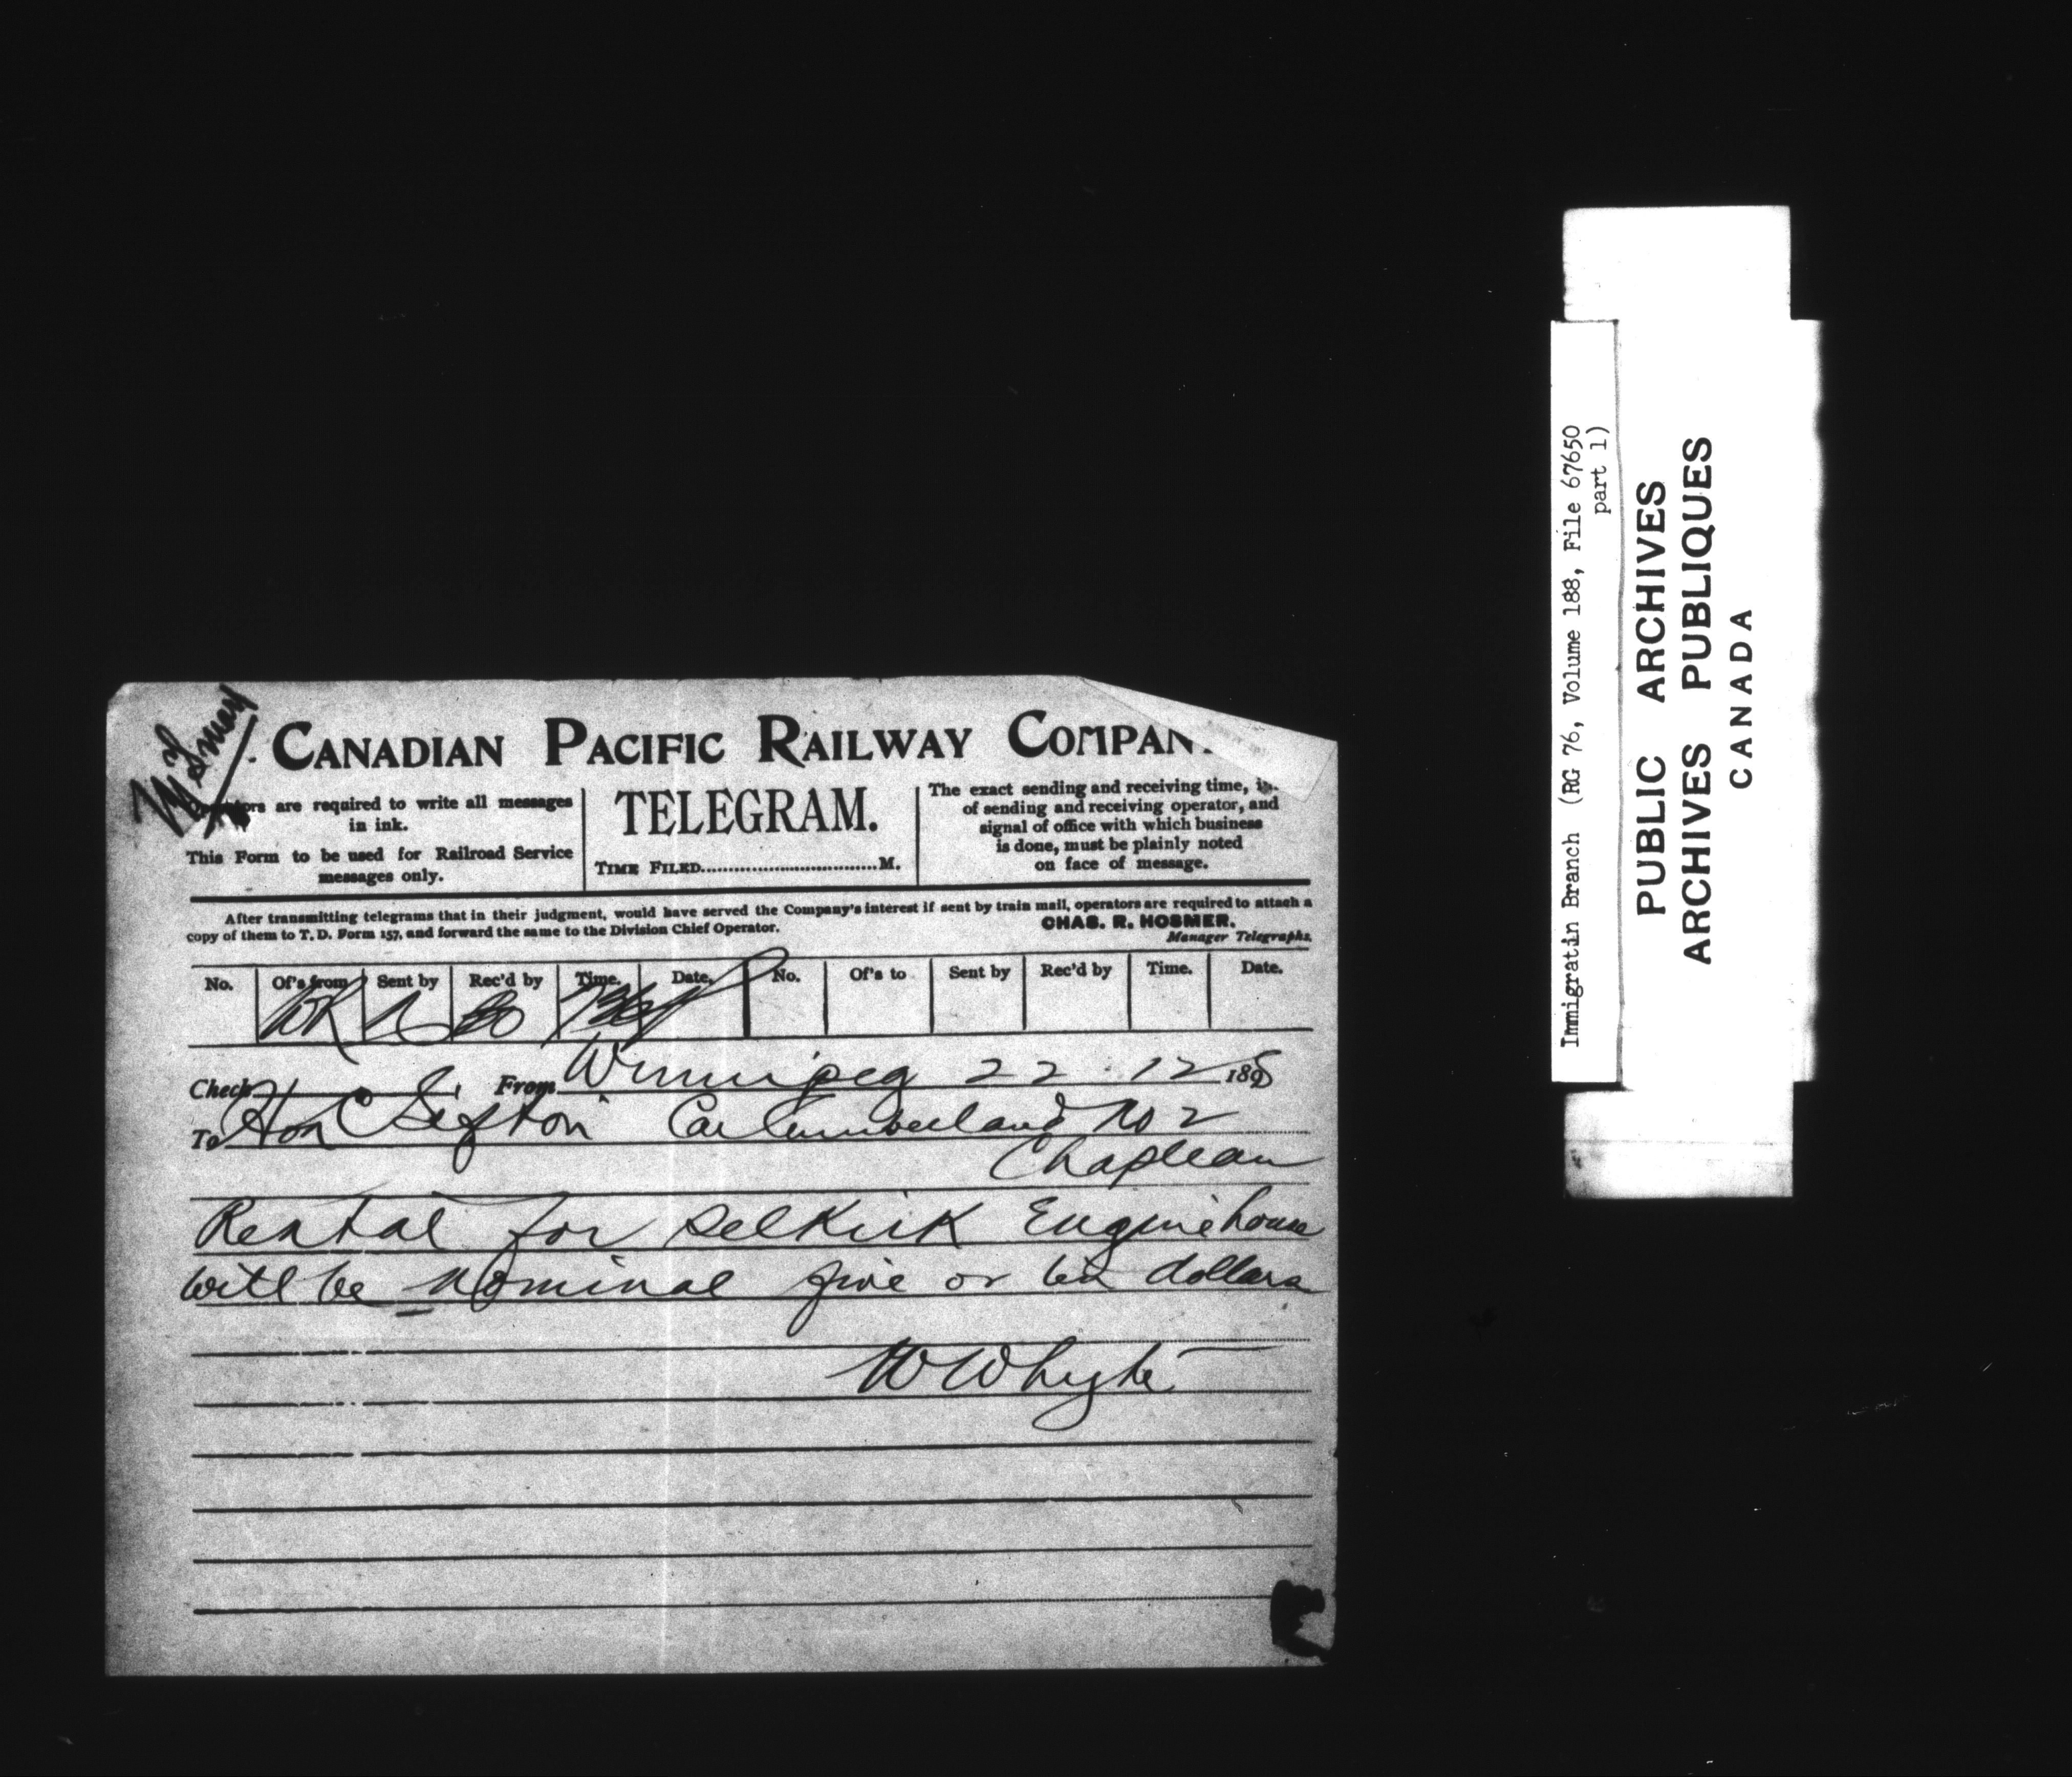 CANADIAN PACIFIC RAILWAY COMPAN
are required to write all messages
in ink.
This Form to be used for Railroad Service
messages only.
TELEGRAM.
TIME FILED..............................M.
The exact sending and receiving time,
of sending and receiving operator, and
signal of office with which business
is done, must be plainly noted
on face of message.
After transmitting telegrams that in their judgment, would have served the Company's interest if sent by train mail, operators are required to attach a
copy of them to T. D. Form 157, and forward the same to the Division Chief Operator.
CHAS. R. HOSMER.
Manager Telegraphs.
No. Of's from Sent by Rec'd by Time. Date. No. Of's to Sent by Rec'd by Time. Date.
Check From Winnipeg 22 12 1898
To Hon C Sifton Car Cumberland No 2
Chapleau
Rental for Selkirk Enginehouse
will be nominal five or ten dollars
W Whyte
Immigratin Branch (RG 76, Volume 188, File 67650
part 1)
PUBLIC ARCHIVES
ARCHIVES PUBLIQUES
CANADA